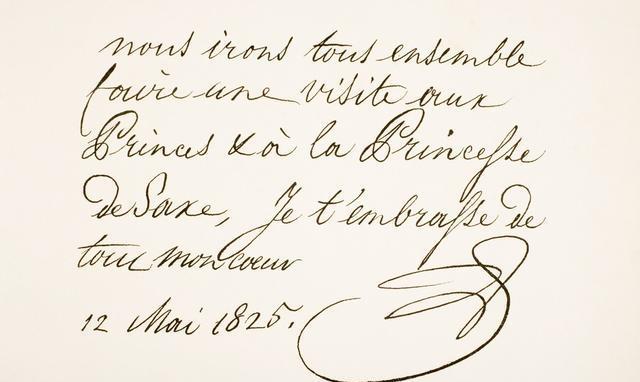 nous irons tous ensemble
faire une visite aux
Princes & à la Princesse
de Saxe, Je t'embrasse de
tout mon coeur
12 Mai 1825.